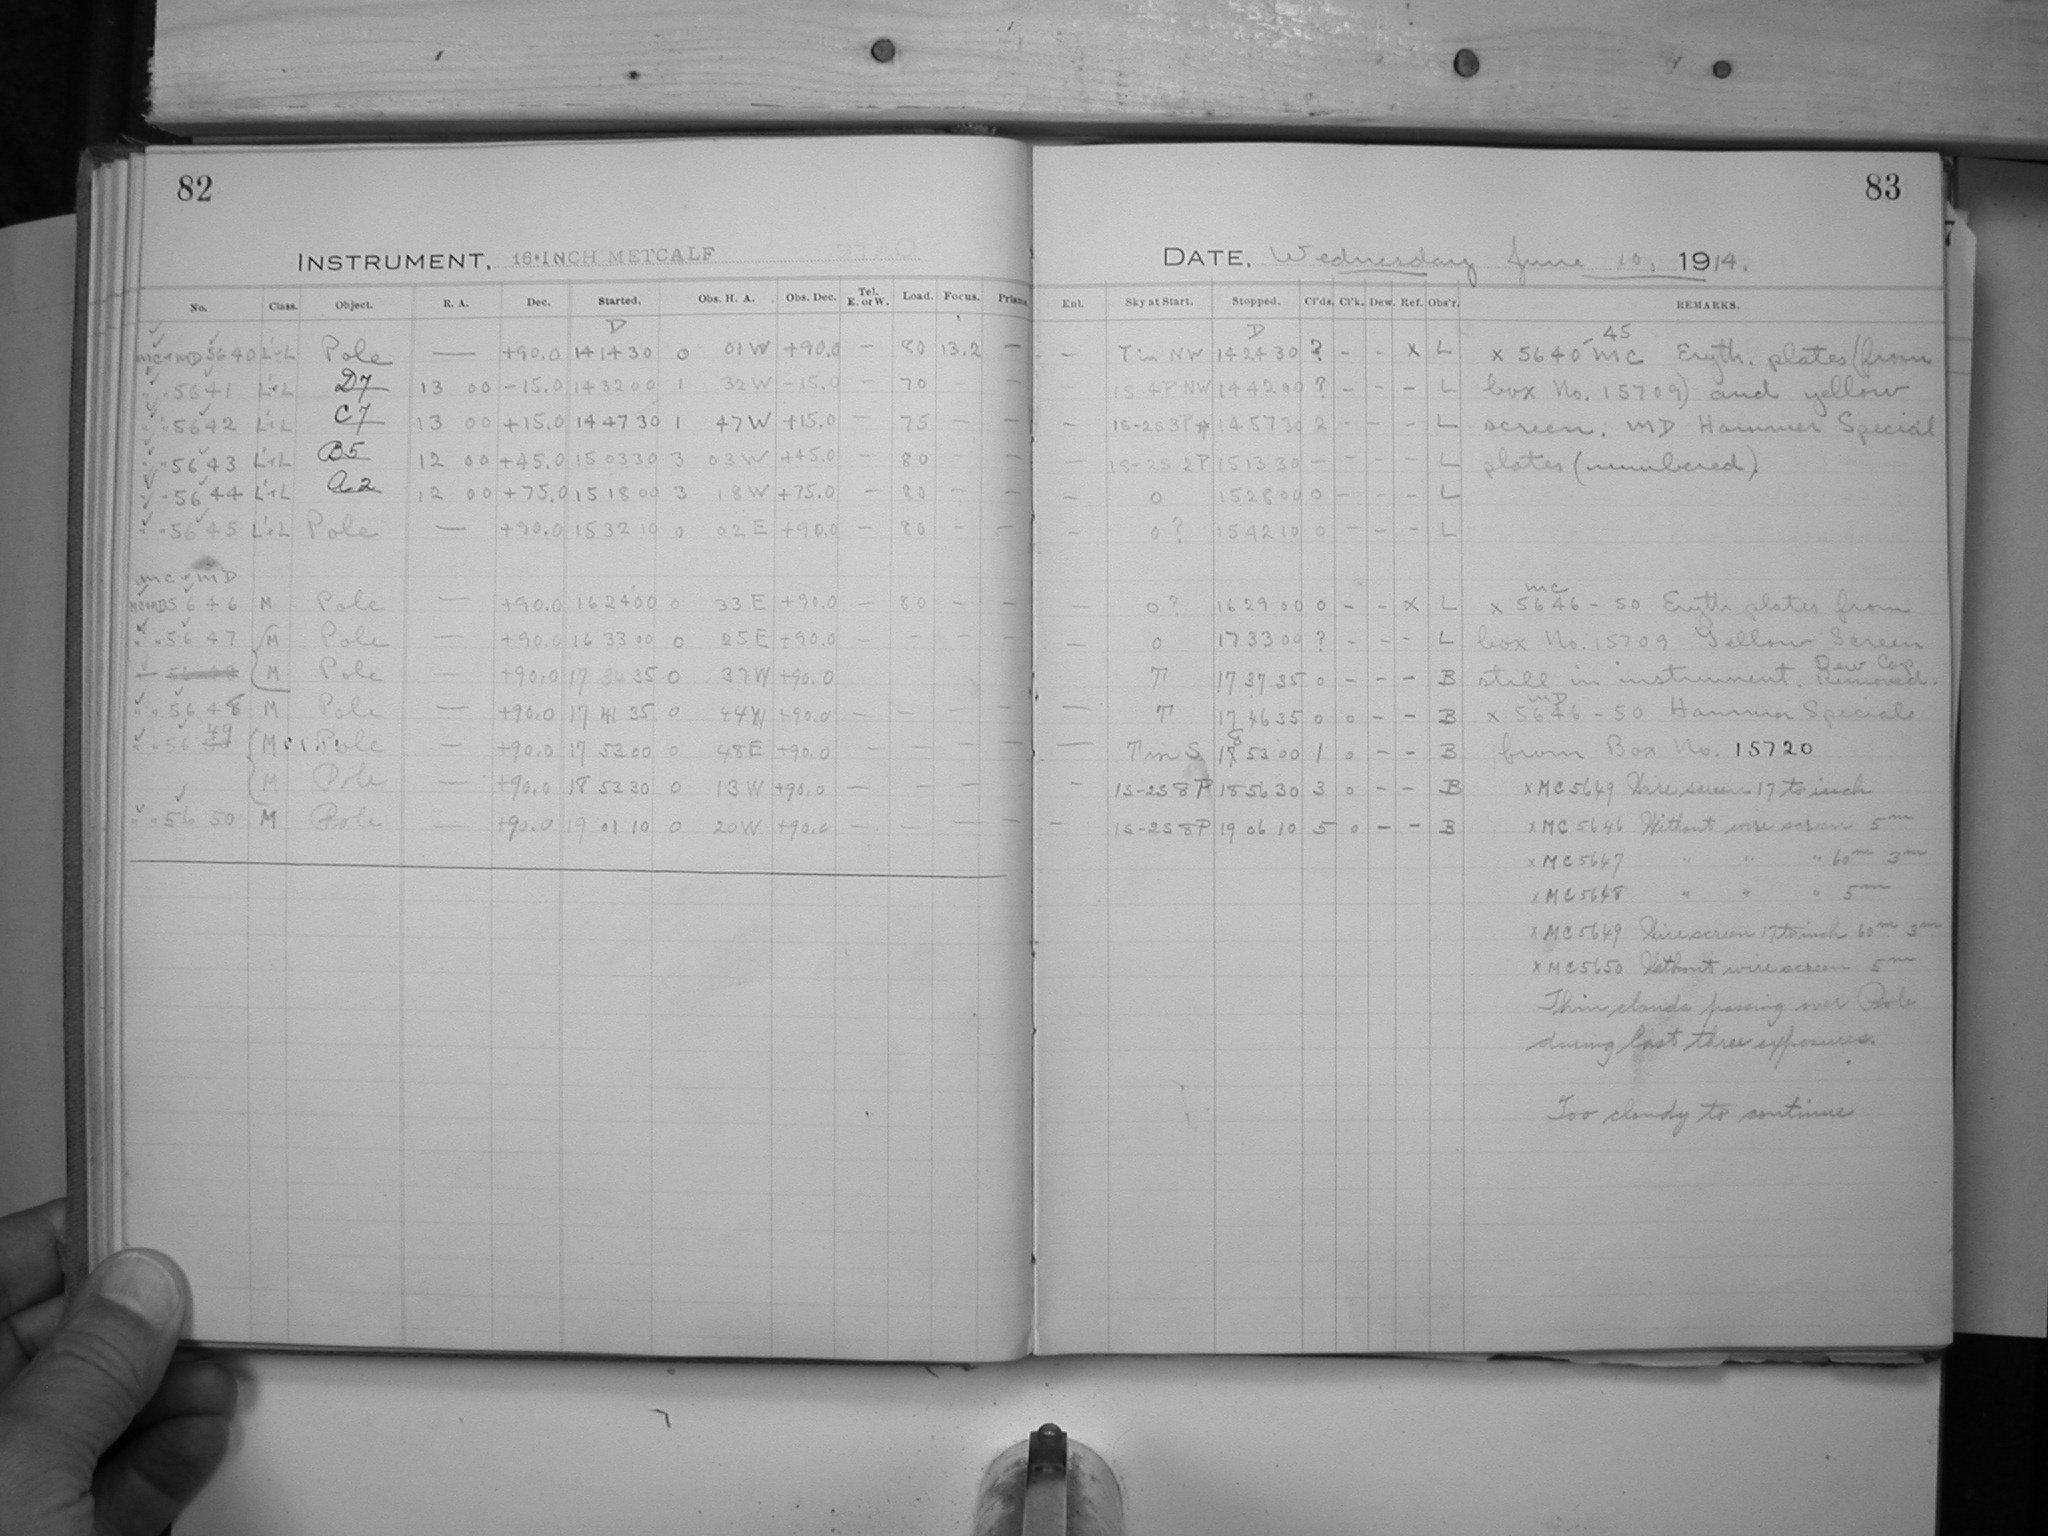 82
INSTRUMENT. 16-INCH METCALF
No. Class. Object. R. A. Dec. Started. Obs. H. A. Obs. Dec. Tel. E. or W. Load. Focus. Prisms.
D
MC+MD 5640 L+L Pole — +90.0 14 14 30 0 01 W +90.0 – 80 13.2 –
" " 5641 L+L D7 13 00 -15.0 14 32 00 1 32 W -15.0 – 70 – –
" " 5642 L+L C7 13 00 +15.0 14 47 30 1 47 W +15.0 – 75 – –
" " 5643 L+L B5 12 00 +45.0 15 03 30 3 03 W +45.0 – 80 – –
" " 5644 L+L A2 12 00 +75.0 15 18 00 3 18 W +75.0 – 80 – –
" " 5645 L+L Pole — +90.0 15 32 10 0 02 E +90.0 – 80 – –
MC+MD
MC+MD 5646 M Pole — +90.0 16 24 00 0 33 E +90.0 – 80 – –
" " 5647 M Pole — +90.0 16 33 00 0 25 E +90.0 – – – –
M Pole — +90.0 17 34 35 0 37 W +90.0
" " 5648 M Pole — +90.0 17 41 35 0 44 W +90.0 – – – –
" " 5649 M Pole — +90.0 17 53 00 0 48 E +90.0 – – – –
M Pole — +90.0 18 53 30 0 13 W +90.0 – – – –
" " 5650 M Pole — +90.0 19 01 10 0 20 W +90.0 – – – –
83
DATE. Wednesday June 10, 1914.
Enl. Sky at Start. Stopped. Cl'ds. Cl'k. Dew. Ref. Obs'r. REMARKS.
D
– T in NW 14 24 30 ? – – x L x 5640-45 MC Eryth. plates (from
1S 4P NW 14 42 00 ? – – – L box No. 15709) and yellow
– 1S-2S 3P 14 57 30 2 – – – L screen. MD Hammer Special
– 1S-2S 2P 15 13 30 – – – – L plates (numbered)
– 0 15 28 00 0 – – – L
– 0? 15 42 10 0 – – – L
– 0? 16 29 00 0 – – x L x MC 5646-50 Eryth. plates from
– 0 17 33 00 ? – – – L box No. 15709 Yellow Screen
T 17 37 35 0 – – – B still in instrument. Dew Cap Removed.
– T 17 46 35 0 0 – – B x MD 5646-50 Hammer Specials
– T in S 18 53 00 1 0 – – B from Box No. 15720
– 1S-2S 8P 18 56 30 3 0 – – B x MC 5649 Wire screen 17 to inch
– 1S-2S 8P 19 06 10 5 0 – – B x MC 5646 Without wire screen 5m
x MC 5647 " " " 60m 3m
x MC 5648 " " " 5m
x MC 5649 Wire screen 17 to inch 60m 3m
x MC 5650 Without wire screen 5m
Thin clouds passing over Pole
during last three exposures.
Too cloudy to continue